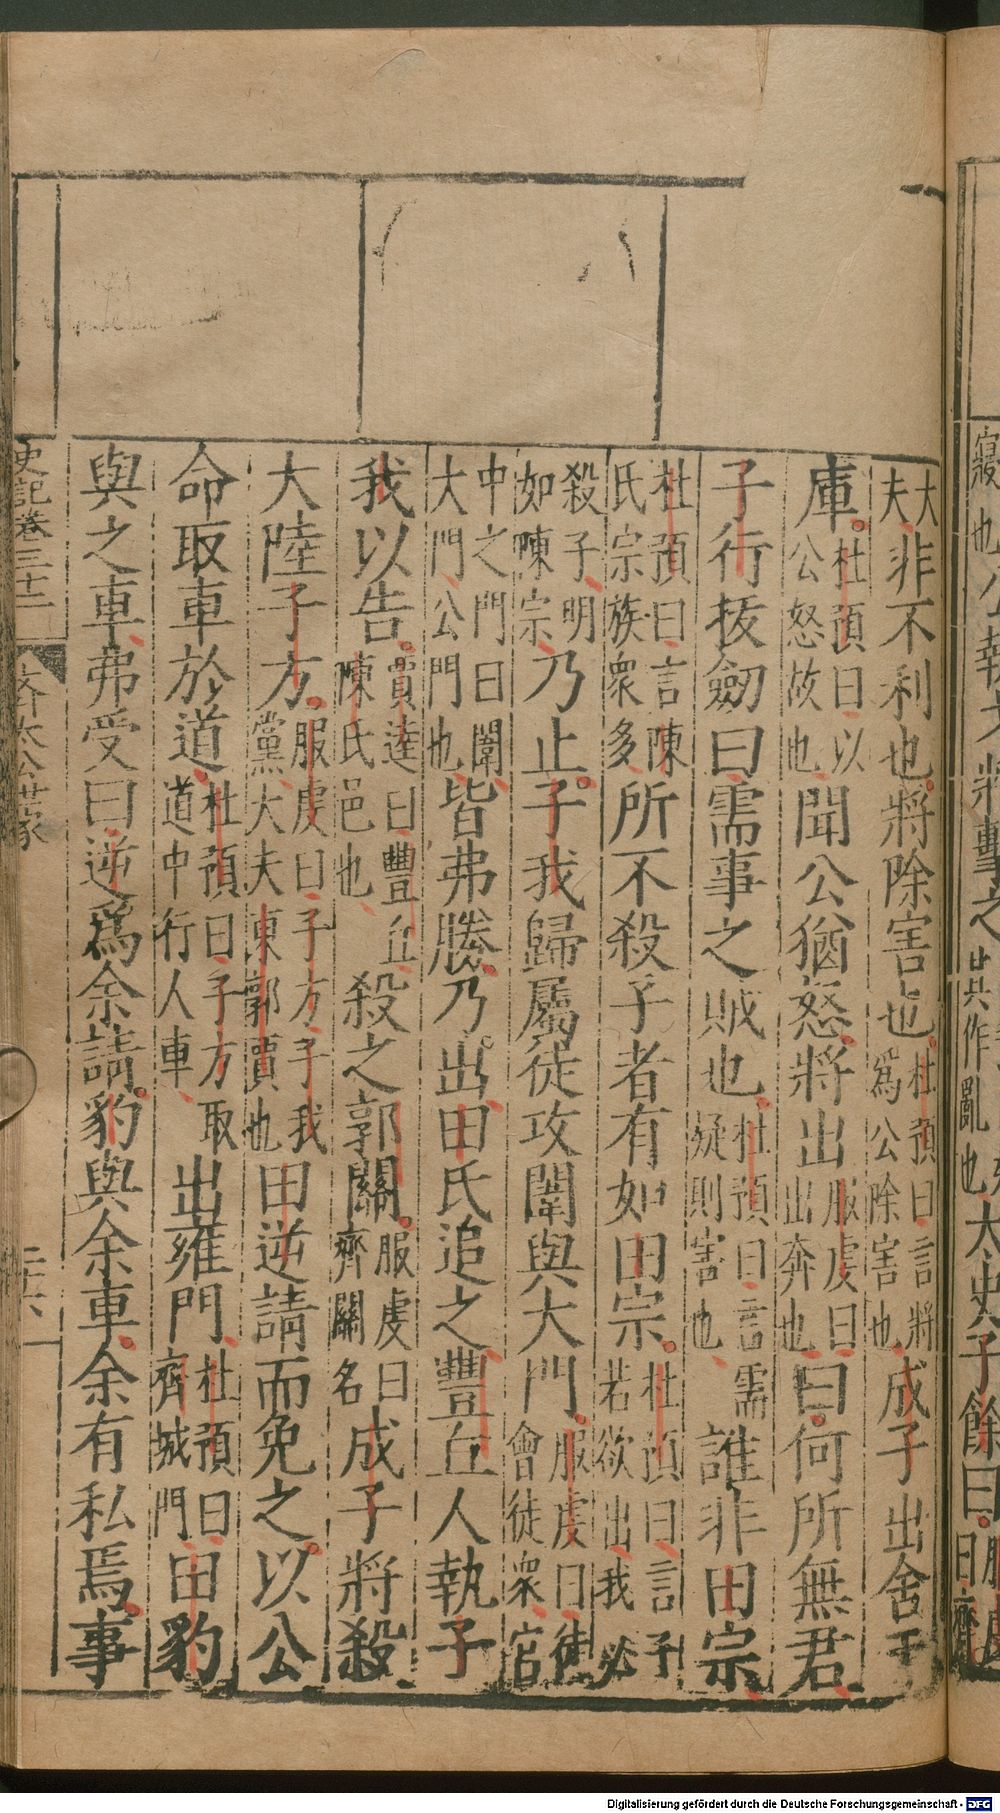 寢也公執戈將擊之
共作亂也太史子餘曰
大夫非不利也將除害也杜預曰言將爲公除害也成子出舍于
庫杜預曰以公怒故也聞公猶怒將出服虔曰出奔也曰何所無君
子行拔劒曰需事之賊也杜預曰言需疑則害也誰非田宗
杜預曰言陳氏宗族衆多所不殺子者有如田宗杜預曰言子若欲出我必
殺子明如陳宗乃止子我歸屬徒攻闈與大門服虔曰徒會徒衆官
中之門曰闈大門公門也皆弗勝乃出田氏追之豐丘人執子
我以告賈逵曰豐丘陳氏邑也殺之郭關服虔曰齊關名成子將殺
大陸子方服虔曰子方子我黨大夫東郭賈也田逆請而免之以公
命取車於道杜預曰子方取道中行人車出雍門杜預曰齊城門田豹
與之車弗受曰逆爲余請豹與余車余有私焉事
史記卷三十二 齊太公世家 二十六
Digitalisierung gefördert durch die Deutsche Forschungsgemeinschaft - DFG